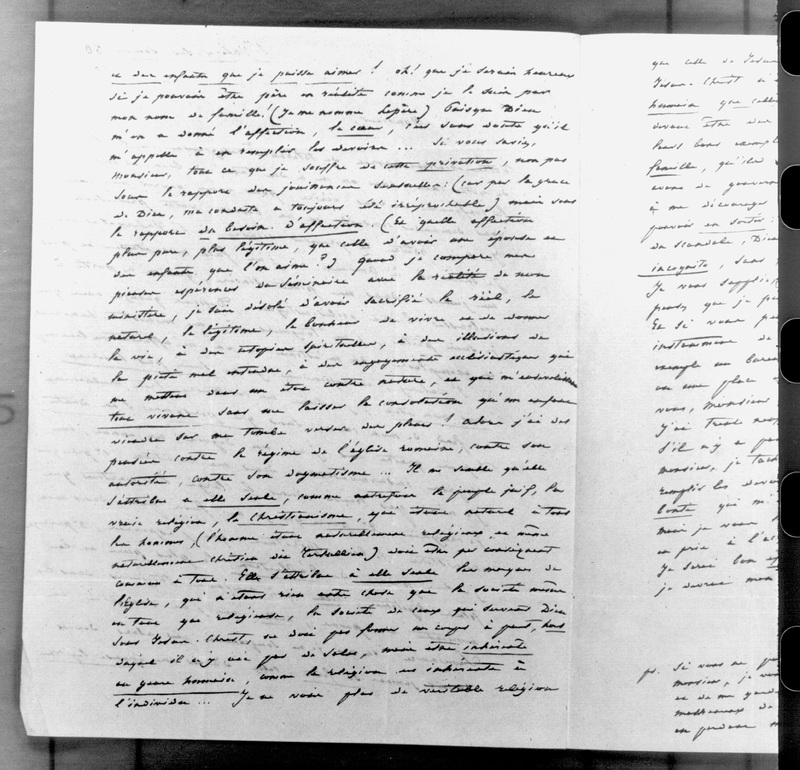 et des enfants que je puisse aimer ! oh ! que je serais heureux
si je pouvais être père en réalité comme je le suis par
mon nom de famille ! (Je me nomme Lepère) Puisque Dieu
m'en a donné l'affection, le cœur, c'est sans doute qu'il
m'appelle à en remplir les devoirs ... Si vous saviez,
monsieur, tout ce que je souffre de cette privation, non pas
sous le rapport des jouissances sensuelles : (car par la grâce
de Dieu, ma conduite a toujours été irréprochable) mais sous
le rapport du besoin d'affection. (Et quelle affection
plus pure, plus légitime, que celle d'avoir une épouse et
des enfants que l'on aime ?) Quand je compare mes
pieuses espérances du séminaire avec la réalité de mon
ministère, je suis désolé d'avoir sacrifié le réel, le
naturel, le légitime, le bonheur de vivre et de donner
la vie, à des utopies spirituelles, à des illusions de
la piété mal entendue, à des engagements ecclésiastiques qui
me mettent dans un état contre nature, et qui
tout vivant sans me laisser la consolation qu'un enfant
viendra sur ma tombe verser des pleurs ! Alors j'ai des
pensées contre le régime de l'église romaine, contre son
autorité, contre son dogmatisme ... Il me semble qu'elle
s'attribue à elle seule, comme autrefois le peuple juif, la
vraie religion, le christianisme, qui étant naturel à tous
les hommes, (l'homme étant naturellement religieux et même
naturellement chrétien dit Tertullien) doit être par conséquent
commun à tous. Elle s'attribue à elle seule les moyens de
l'église, qui n'étant rien autre chose que la société même
en tant que religieuse, la société de ceux qui servent Dieu
sous Jésus-Christ, ne doit pas former un corps à part, hors
duquel il n'y ait pas de salut, mais être inhérente
au genre humain, comme la religion est inhérente à
l'individu ... Je ne vois plus de véritable religion
que celle de Jésus
Jésus-Christ a
humain que celle
devant être des
leurs bons exemples
famille, qu'ils
avons de gouverner
à me décourager
pouvais en sortir
du scandale, Dieu
incognito, sans
Je vous supplie
pensez que je
Et si vous
instamment de
exemple un bureau
ou une place
vous, monsieur
J'ai trente
s'il n'y a pas
monsieur, je tâch
remplir les devoirs
bonté qui m'
mais je vous
en prie à l'a
Je serai bon
je devrai mon
ps. Si vous ne
monsieur, je vous
et de me garder
malheureux de
en perdrai m